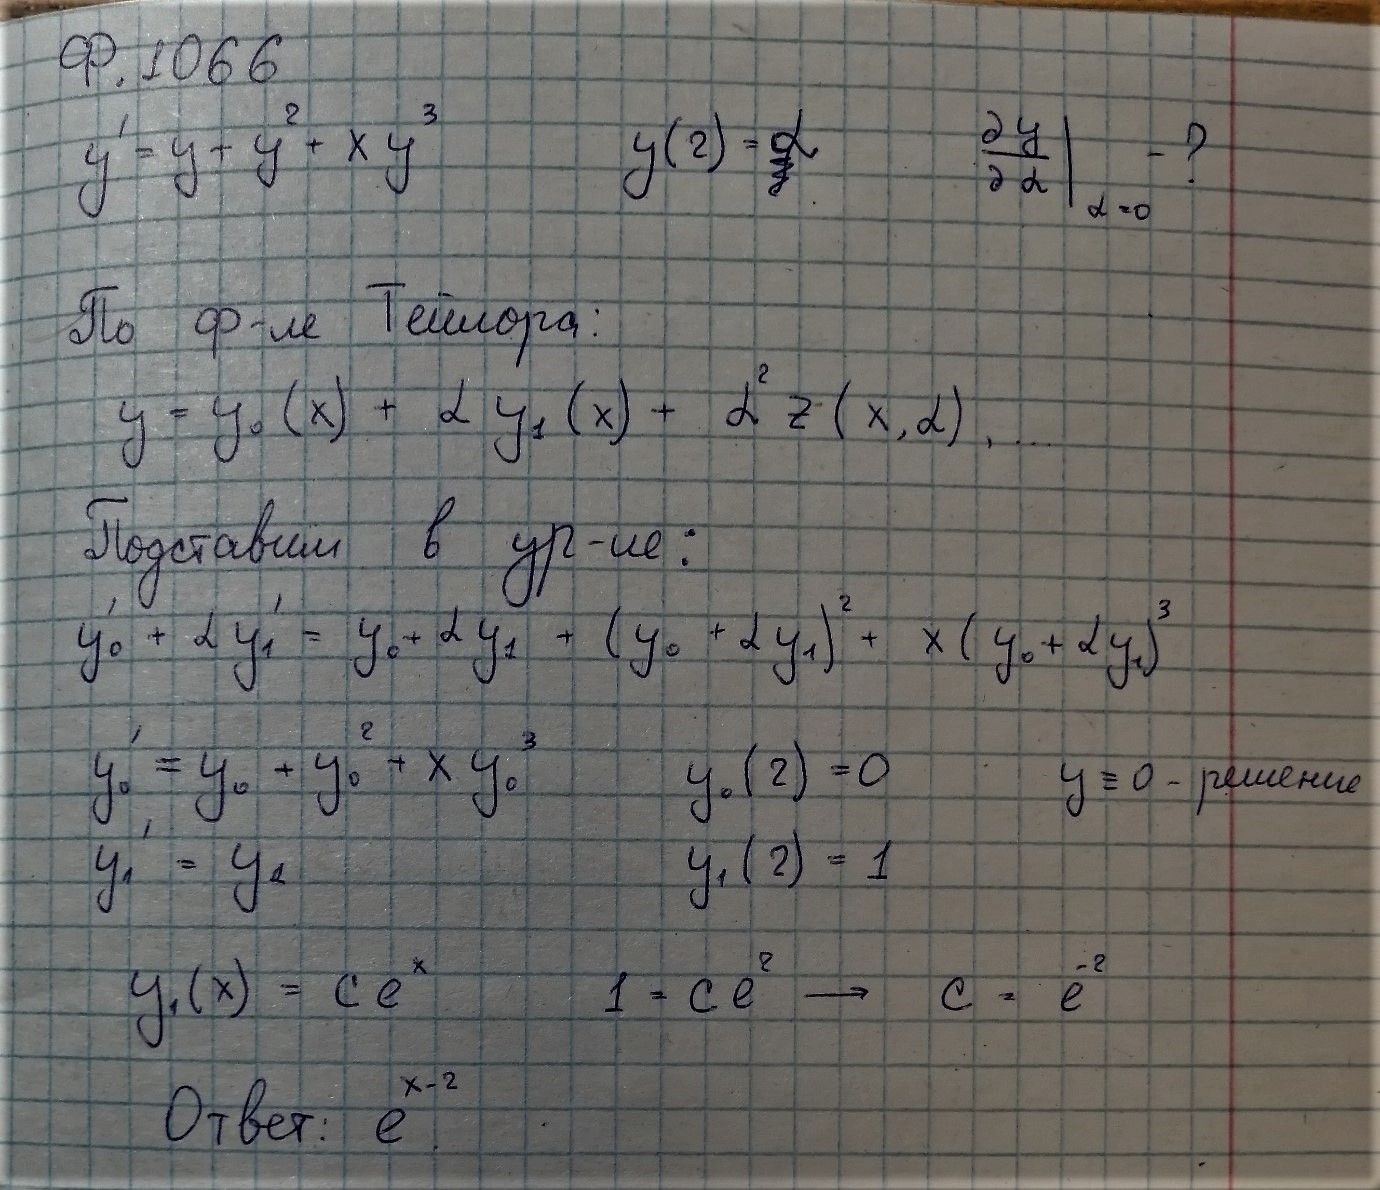 Ф. 1066
y' = y + y² + xy³    y(2) = α    ∂y/∂α |α=0 - ?
По ф-ле Тейлора:
y = y₀(x) + αy₁(x) + α²z(x,α), ...
Подставим в ур-ие:
y₀' + αy₁' = y₀ + αy₁ + (y₀ + αy₁)² + x(y₀ + αy₁)³
y₀' = y₀ + y₀² + xy₀³    y₀(2) = 0    y ≡ 0 - решение
y₁' = y₁    y₁(2) = 1
y₁(x) = ceˣ    1 = ce² → c = e⁻²
Ответ: eˣ⁻².